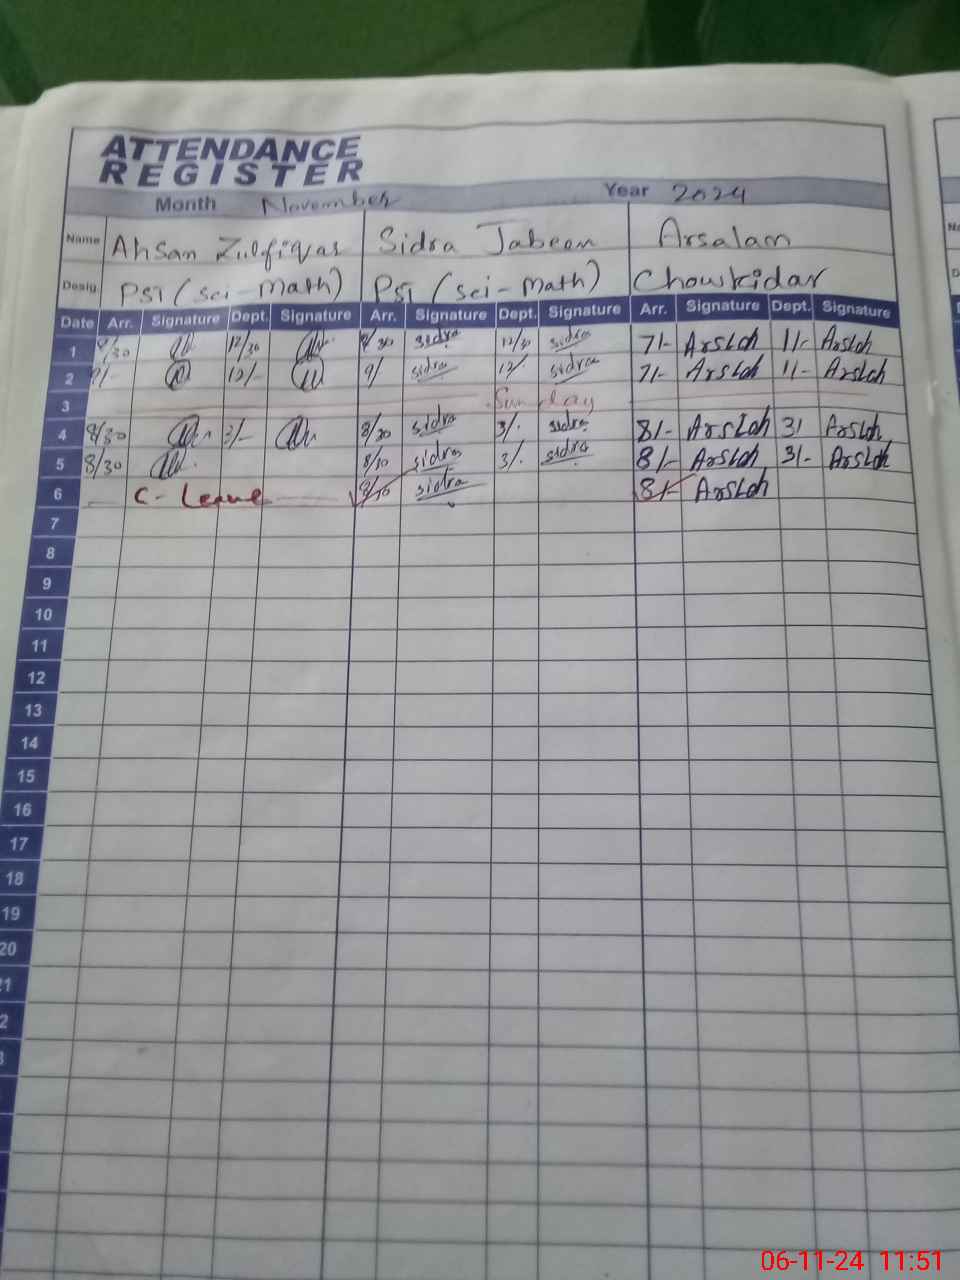 ATTENDANCE
REGISTER
Month November Year 2024
Name Ahsan Zulfiqar Sidra Jabeen Arsalan
Desig. PST (sci-math) PST (sci-math) Chowkidar
Date Arr. Signature Dept. Signature Arr. Signature Dept. Signature Arr. Signature Dept. Signature
1 8/30 12/30 8/30 sidra 12/30 sidra 7/- ArsLah 11/- ArsLah
2 9/- 12/- 9/ sidra 12/. sidra 7/- ArsLah 11/- ArsLah
3 Sunday
4 8/30 3/- 8/30 sidra 3/. sidra 8/- ArsLah 3/ ArsLah
5 8/30 8/30 sidra 3/. sidra 8/- ArsLah 3/- ArsLah
6 C-Leave sidra 8/- ArsLah
7
8
9
10
11
12
13
14
15
16
17
18
19
20
06-11-24 11:51